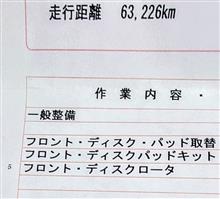 走行距離 63,226km
作業内容・
一般整備
フロント・ディスク・パッド取替
フロント・ディスクパッドキット
フロント・ディスクロータ
5